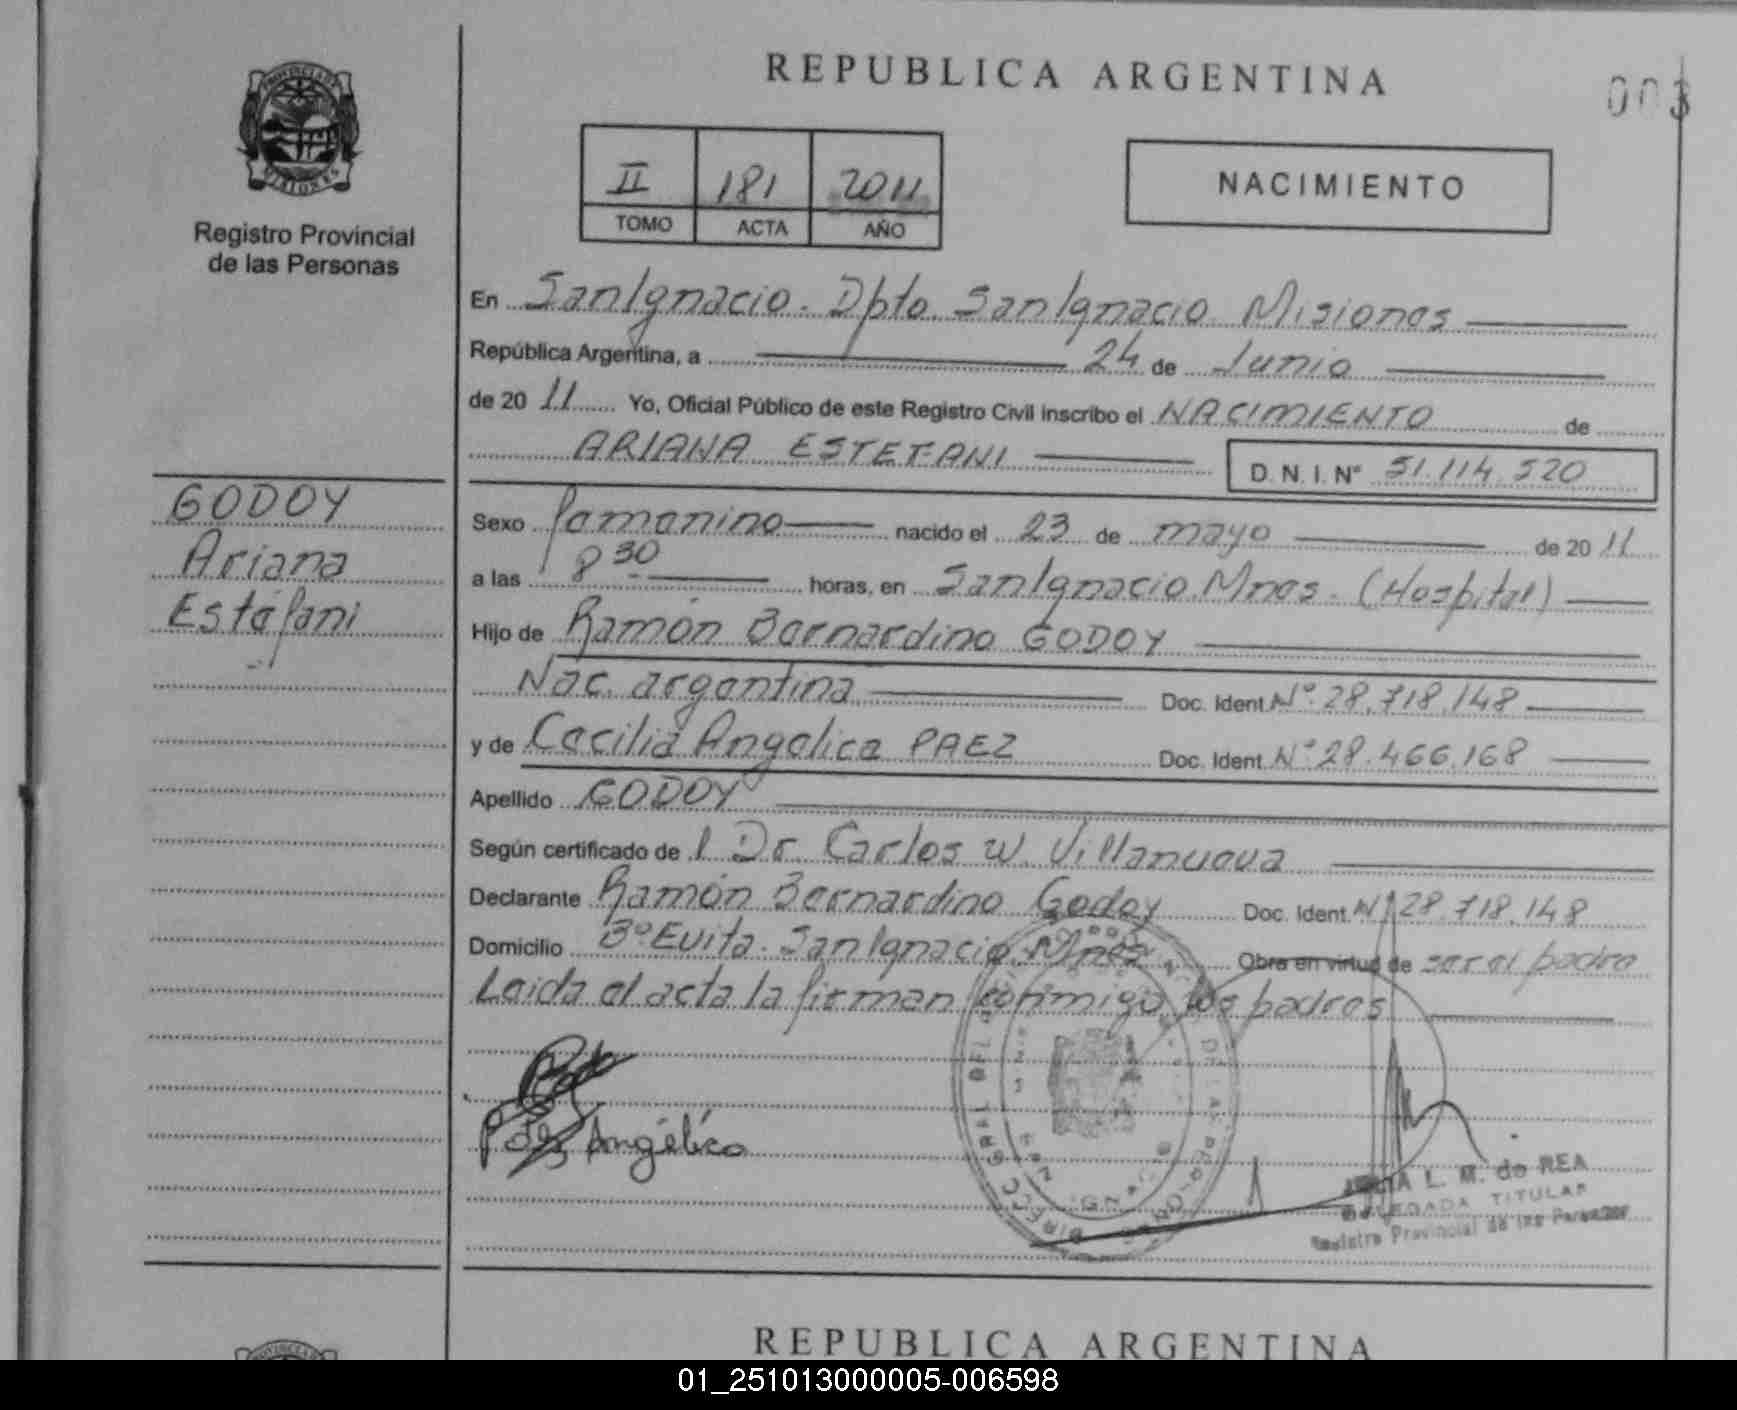 REPUBLICA ARGENTINA
003
PROVINCIA DE
MISIONES
Registro Provincial
de las Personas
II 181 2011
TOMO ACTA AÑO
NACIMIENTO
En San Ignacio. Dpto. San Ignacio Misiones
República Argentina, a 24 de Junio
de 20 11 Yo, Oficial Público de este Registro Civil inscribo el NACIMIENTO de
ARIANA ESTEFANI D.N.I. Nº 51.114.520
GODOY
Ariana
Estéfani
Sexo femenino nacido el 23 de mayo de 20 11
a las 8 30 horas, en San Ignacio Mnes. (Hospital)
Hijo de Ramón Bernardino GODOY
Nac. argentina Doc. Ident. Nº 28.718.148
y de Cecilia Angelica PAEZ Doc. Ident. Nº 28.466.168
Apellido GODOY
Según certificado de l Dr Carlos W. Villanueva
Declarante Ramón Bernardino Godoy Doc. Ident. Nº 28.718.148
Domicilio Bº Evita. San Ignacio Mnes Obra en virtud de ser el padre
Leida el acta la firman conmigo los padres
Paez Angélica
L. M. de REA
DELEGADA TITULAR
Registro Provincial de las Personas
REPUBLICA ARGENTINA
01_251013000005-006598